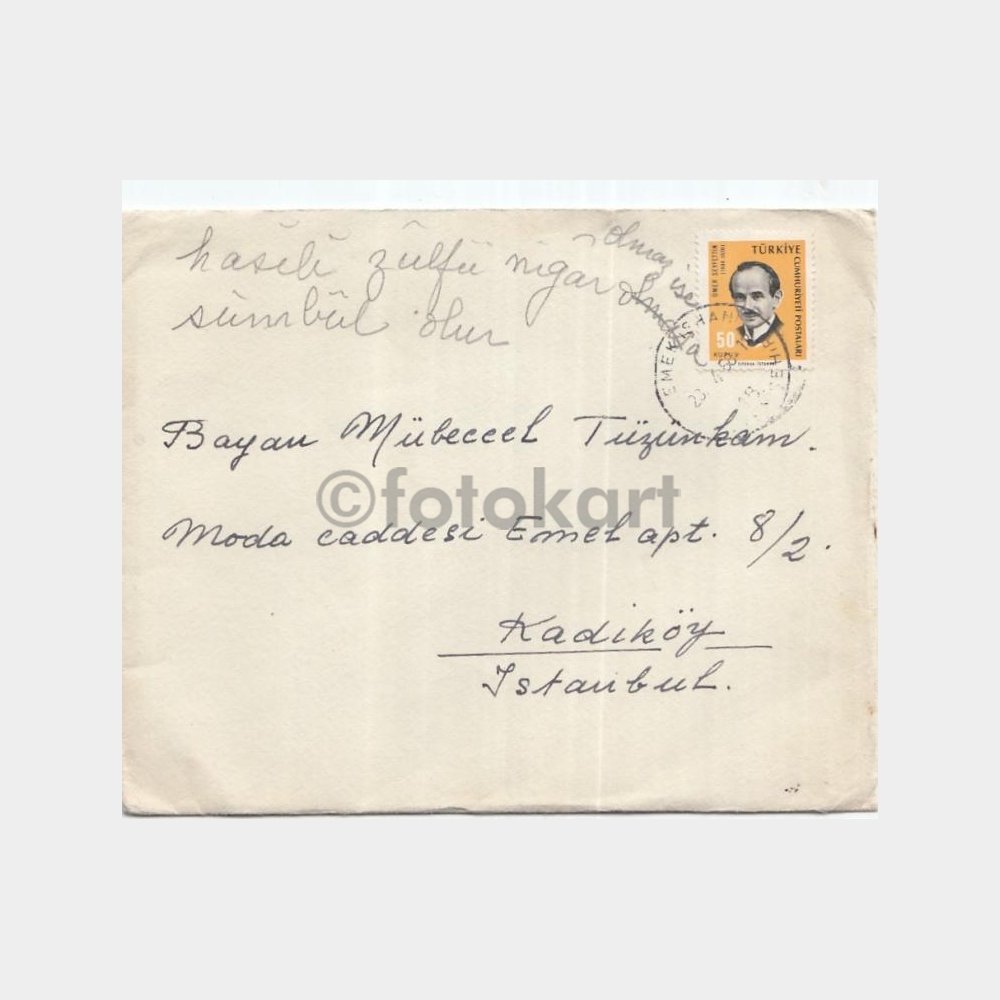 hasılı zülfü nigâr olmaz ise
olmasa
sümbül olur
TÜRKİYE
CUMHURİYETİ POSTALARI
ÖMER SEYFETTİN
50
KURUŞ
Bayan Mübeccel Tüzünkam.
©fotokart
Moda caddesi Emel apt. 8/2.
Kadıköy
Istanbul.